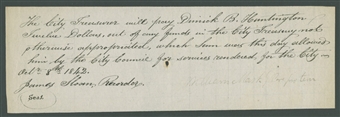 The City Treasurer will pay Dimick B. Huntington
Twelve Dollars, out of any funds in the City Treasury not
otherwise appropriated, which sum was this day allowed
him, by the City Council for services rendered, for the City—
Oct. 8th 1842.
James Sloan, Recorder.
Seal